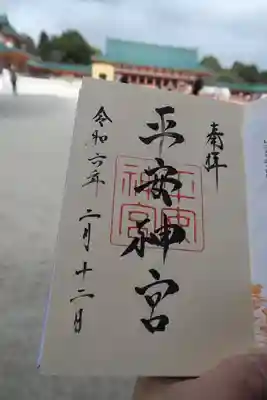 奉拝
平安神宮
平安神宮
令和六年二月十二日